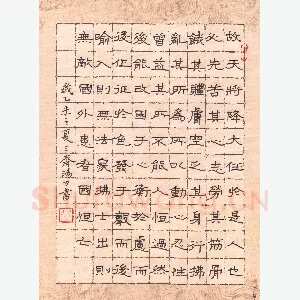 故天將降大任於是人也
必先苦其心志勞其筋骨
餓其體膚空乏其身行拂
亂其所為所以動心忍性
曾益其所不能人恒過然
後能改困於心衡於慮而
後作征於色發于聲而後
喻入則無法家拂士出則
無敵國外患者國恒亡
歲乙未之夏